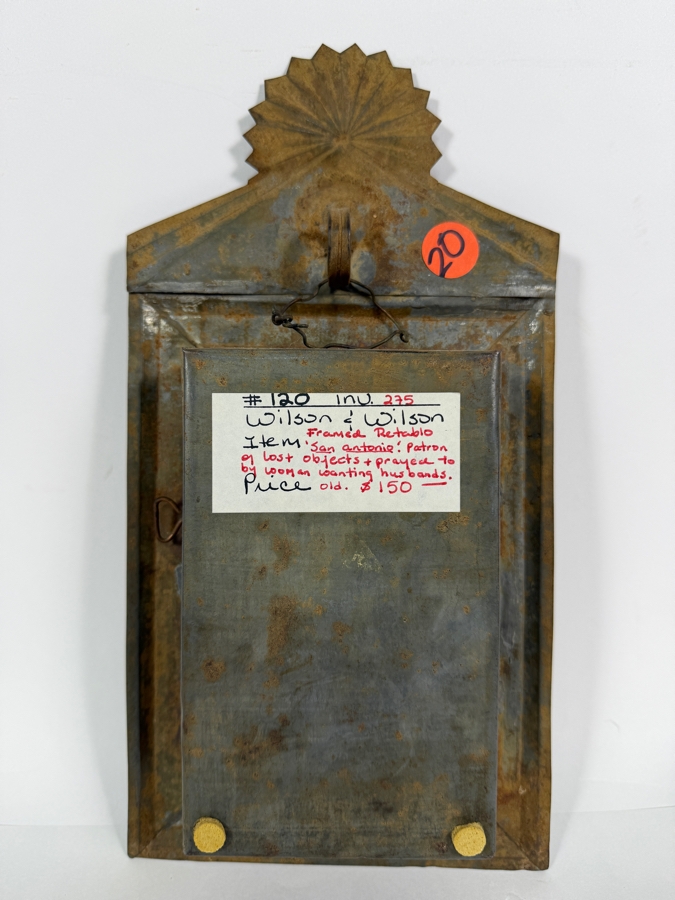 20
# 120 inv. 275
Wilson & Wilson
Item Framed Retablo
"San Antonio". Patron
of lost objects + prayed to
by women wanting husbands.
Price old. $150